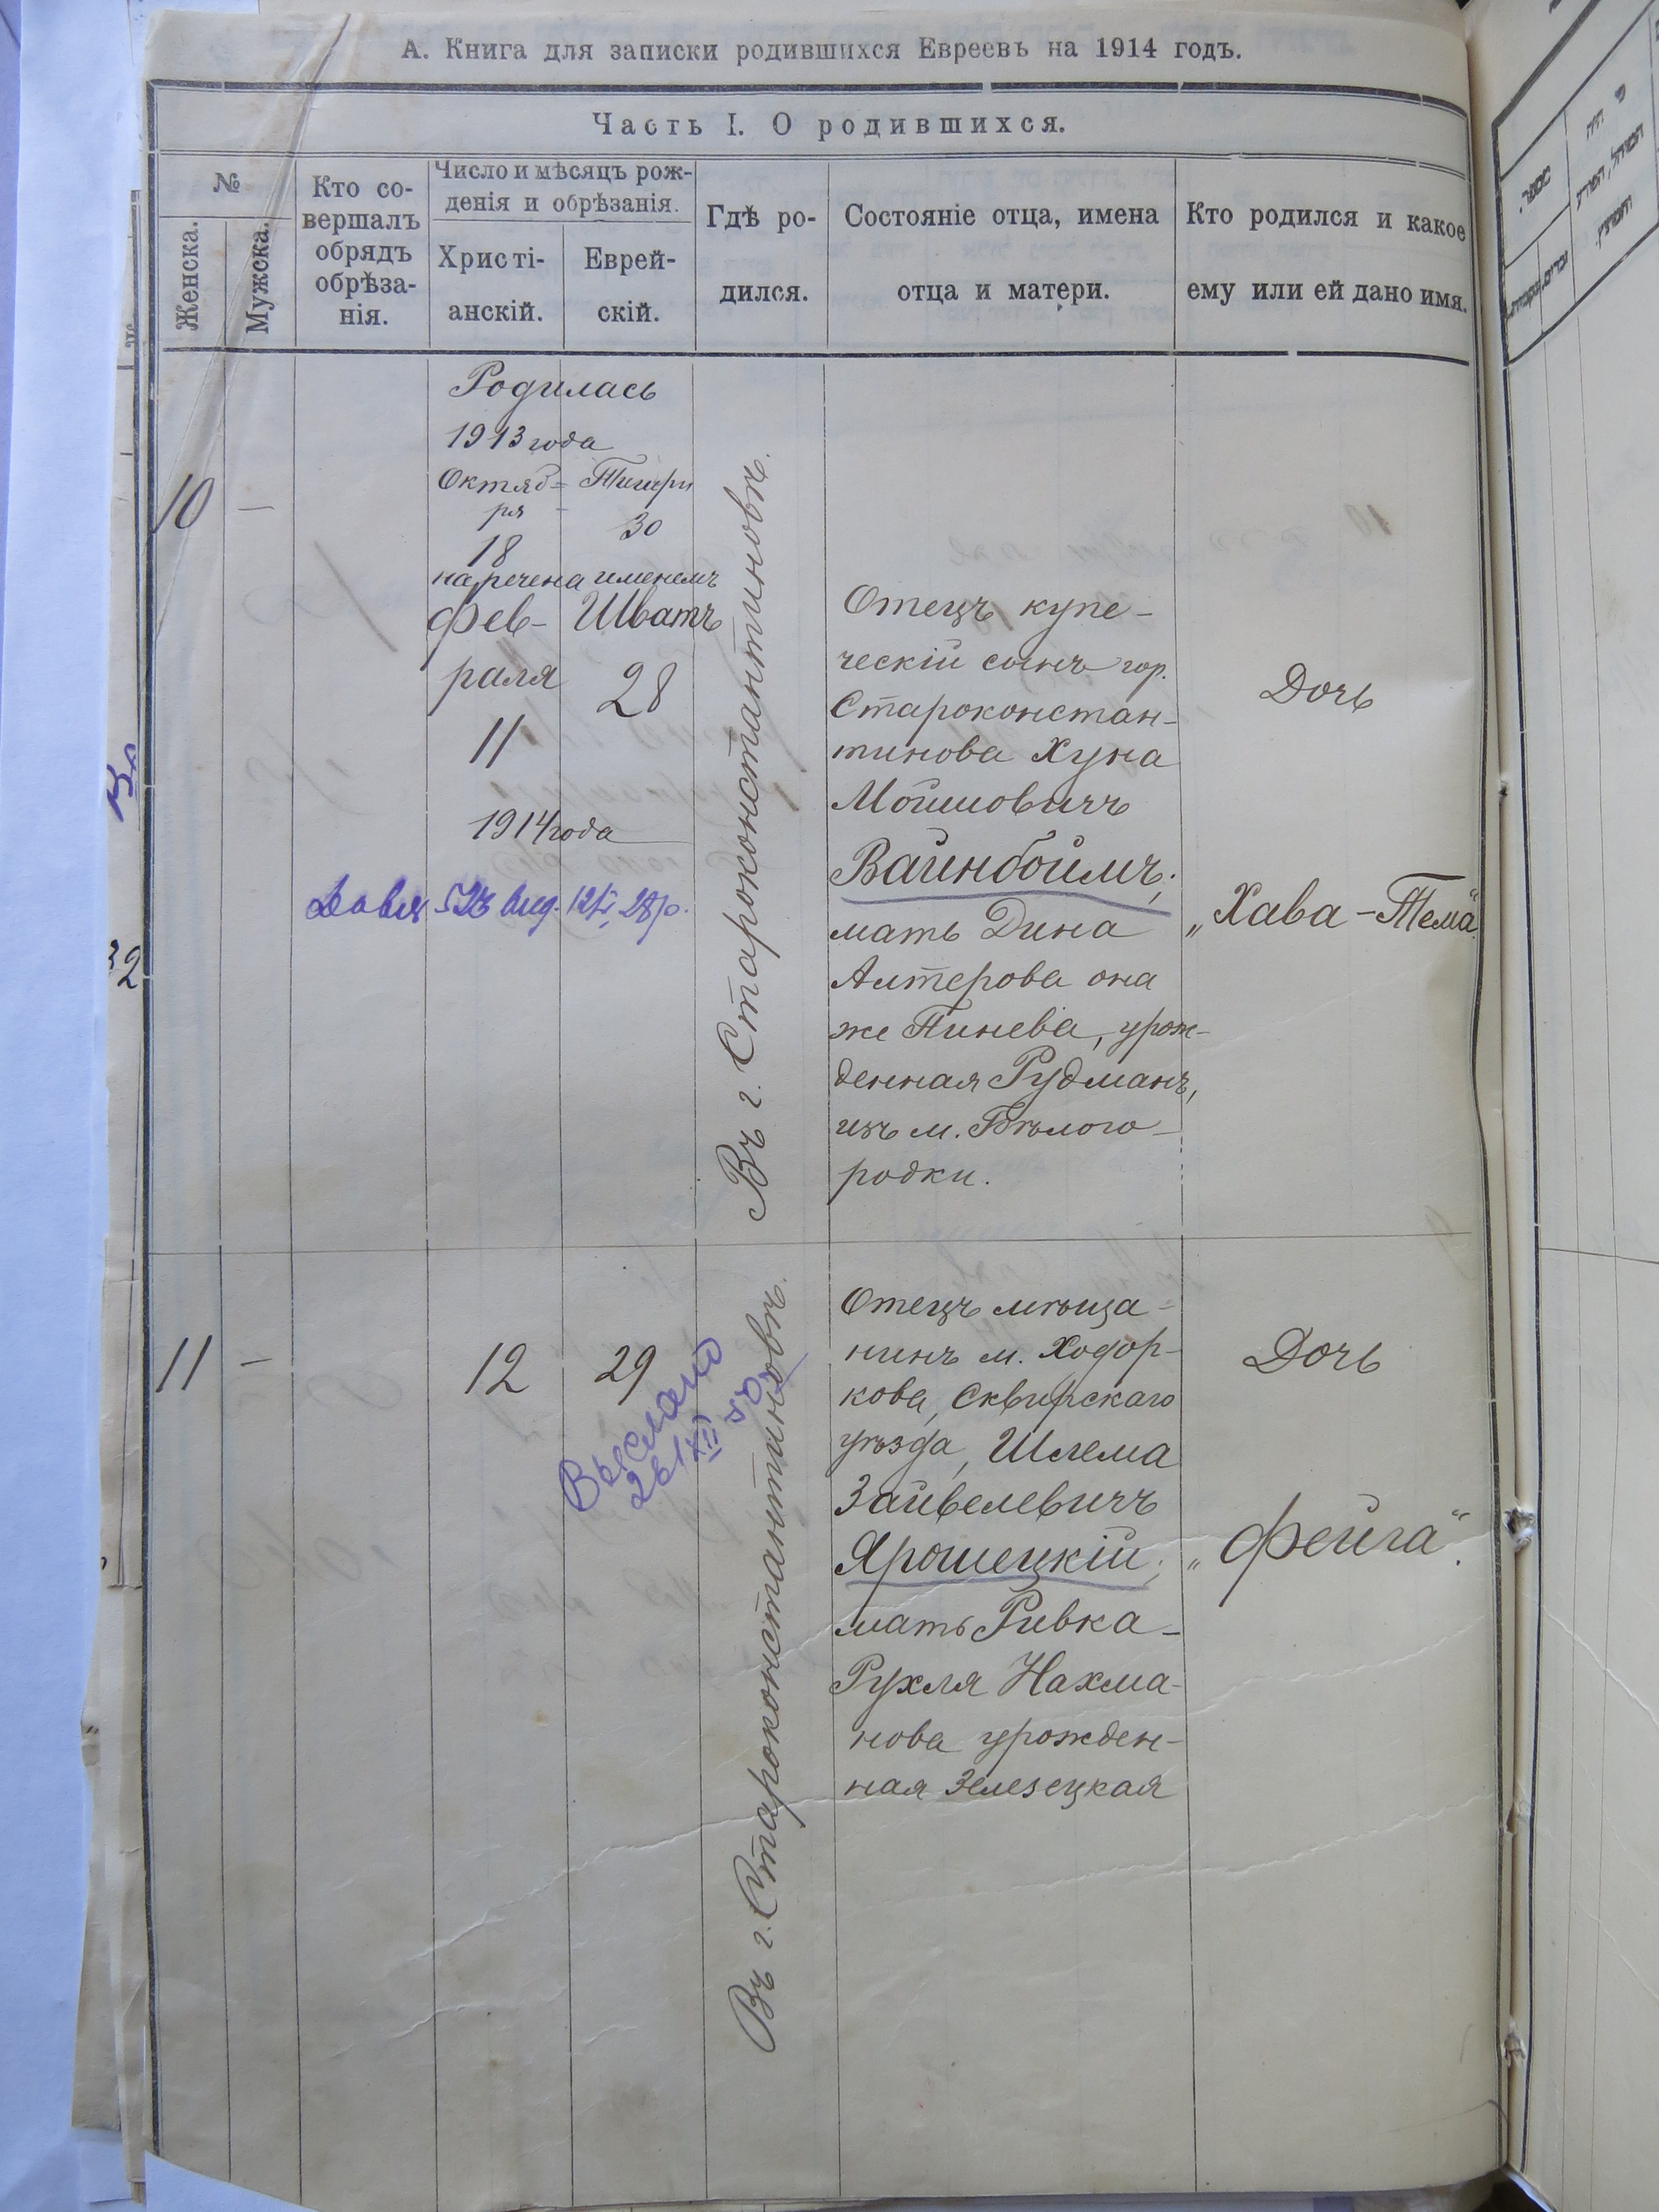 А. Книга для записки родившихся Евреевъ на 1914 годъ.
Часть I. О родившихся.
№
Женска.
Мужска.
Кто со-
вершалъ
обрядъ
обрѣза-
нія.
Число и мѣсяцъ рож-
денія и обрѣзанія.
Христі-
анскій.
Еврей-
скій.
Гдѣ ро-
дился.
Состояніе отца, имена
отца и матери.
Кто родился и какое
ему или ей дано имя.
10
—
Родилась
1913 года
Октяб= Тишри
ря 30
18
наречена именемъ
Фев- Шватъ
раля 28
11
1914 года
28/о.
Въ г. Староконстантиновѣ.
Отецъ купе-
ческій сынъ гор.
Староконстан-
тинова Хуна
Мошковичъ
Вайнбоймъ;
мать Дина
Алтерова она
же Пинева, урож-
денная Рудманъ,
изъ м. Бѣлого-
родки.
Дочь
„Хава-Тема“
11
—
12
29
Выслано
26/XII
Въ г. Староконстантиновѣ.
Отецъ мѣща-
нинъ м. Ходор-
кова, Сквирскаго
уѣзда, Шлема
Зайвелевичъ
Ярошецкій;
мать Ривка-
Рухля Нахма-
нова урожден-
ная Зелезецкая
Дочь
„Фейга“.
32